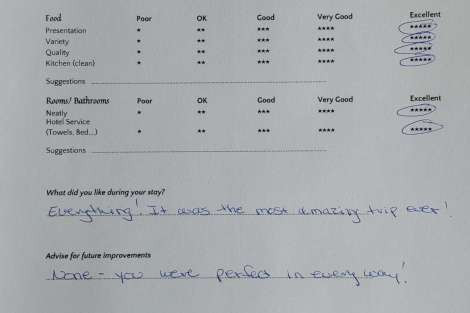 Food Poor OK Good Very Good Excellent
Presentation * ** *** **** *****
Variety * ** *** **** *****
Quality * ** *** **** *****
Kitchen (clean) * ** *** **** *****
Suggestions
Rooms/ Bathrooms Poor OK Good Very Good Excellent
Neatly * ** *** **** *****
Hotel Service
(Towels, Bed...) * ** *** **** *****
Suggestions
What did you like during your stay?
Everything! It was the most amazing trip ever!
Advise for future improvements
None - you were perfect in every way!